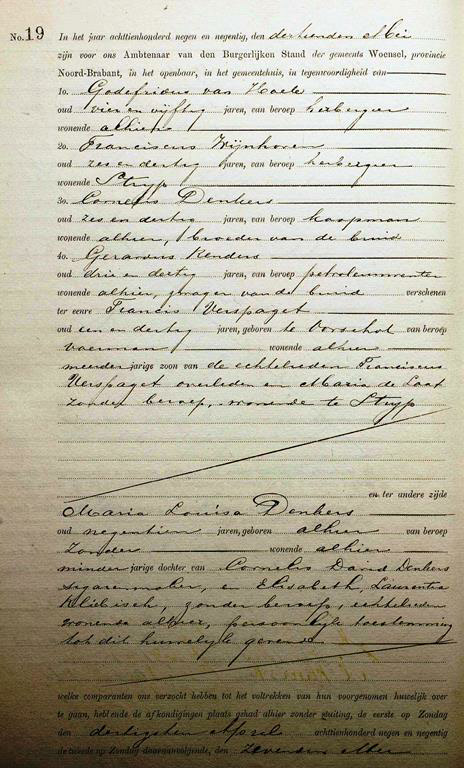 No. 19 In het jaar achttienhonderd negen en negentig, den dertienden Mei
zijn voor ons Ambtenaar van den Burgerlijken Stand der gemeente Woensel, provincie
Noord-Brabant, in het openbaar, in het gemeentehuis, in tegenwoordigheid van
1o. Godefridus van
oud vier en vijftig jaren, van beroep herbergier
wonende alhier
2o. Franciscus Wijnhoven
oud zes en dertig jaren, van beroep herbergier
wonende Stryp
3o. Cornelis Donkers
oud zes en dertig jaren, van beroep koopman
wonende alhier, broeder van de bruid
4o. Gerardus Renders
oud drie en dertig jaren, van beroep petroleumventer
wonende alhier, zwager van de bruid verschenen
ter eenre Francis Verspaget
oud een en dertig jaren, geboren te Oirschot van beroep
voerman wonende alhier
meerderjarige zoon van de echtelieden Franciscus
Verspaget overleden en Maria de Laat
zonder beroep, wonende te Stryp
en ter andere zijde
Maria Louisa Donkers
oud negentien jaren, geboren alhier van beroep
zonder wonende alhier
minderjarige dochter van Cornelis David Donkers
sigarenmaker, en Elisabeth, Laurentia
zonder beroep, echtelieden
wonende alhier, persoonlijk toestemming
tot dit huwelijk gevende
welke comparanten ons verzocht hebben tot het voltrekken van hun voorgenomen huwelijk over
te gaan, hebbende de afkondigingen plaats gehad alhier zonder stuiting, de eerste op Zondag
den dertigsten April achttienhonderd negen en negentig
de tweede op Zondag daaraanvolgende, den zevenden Mei